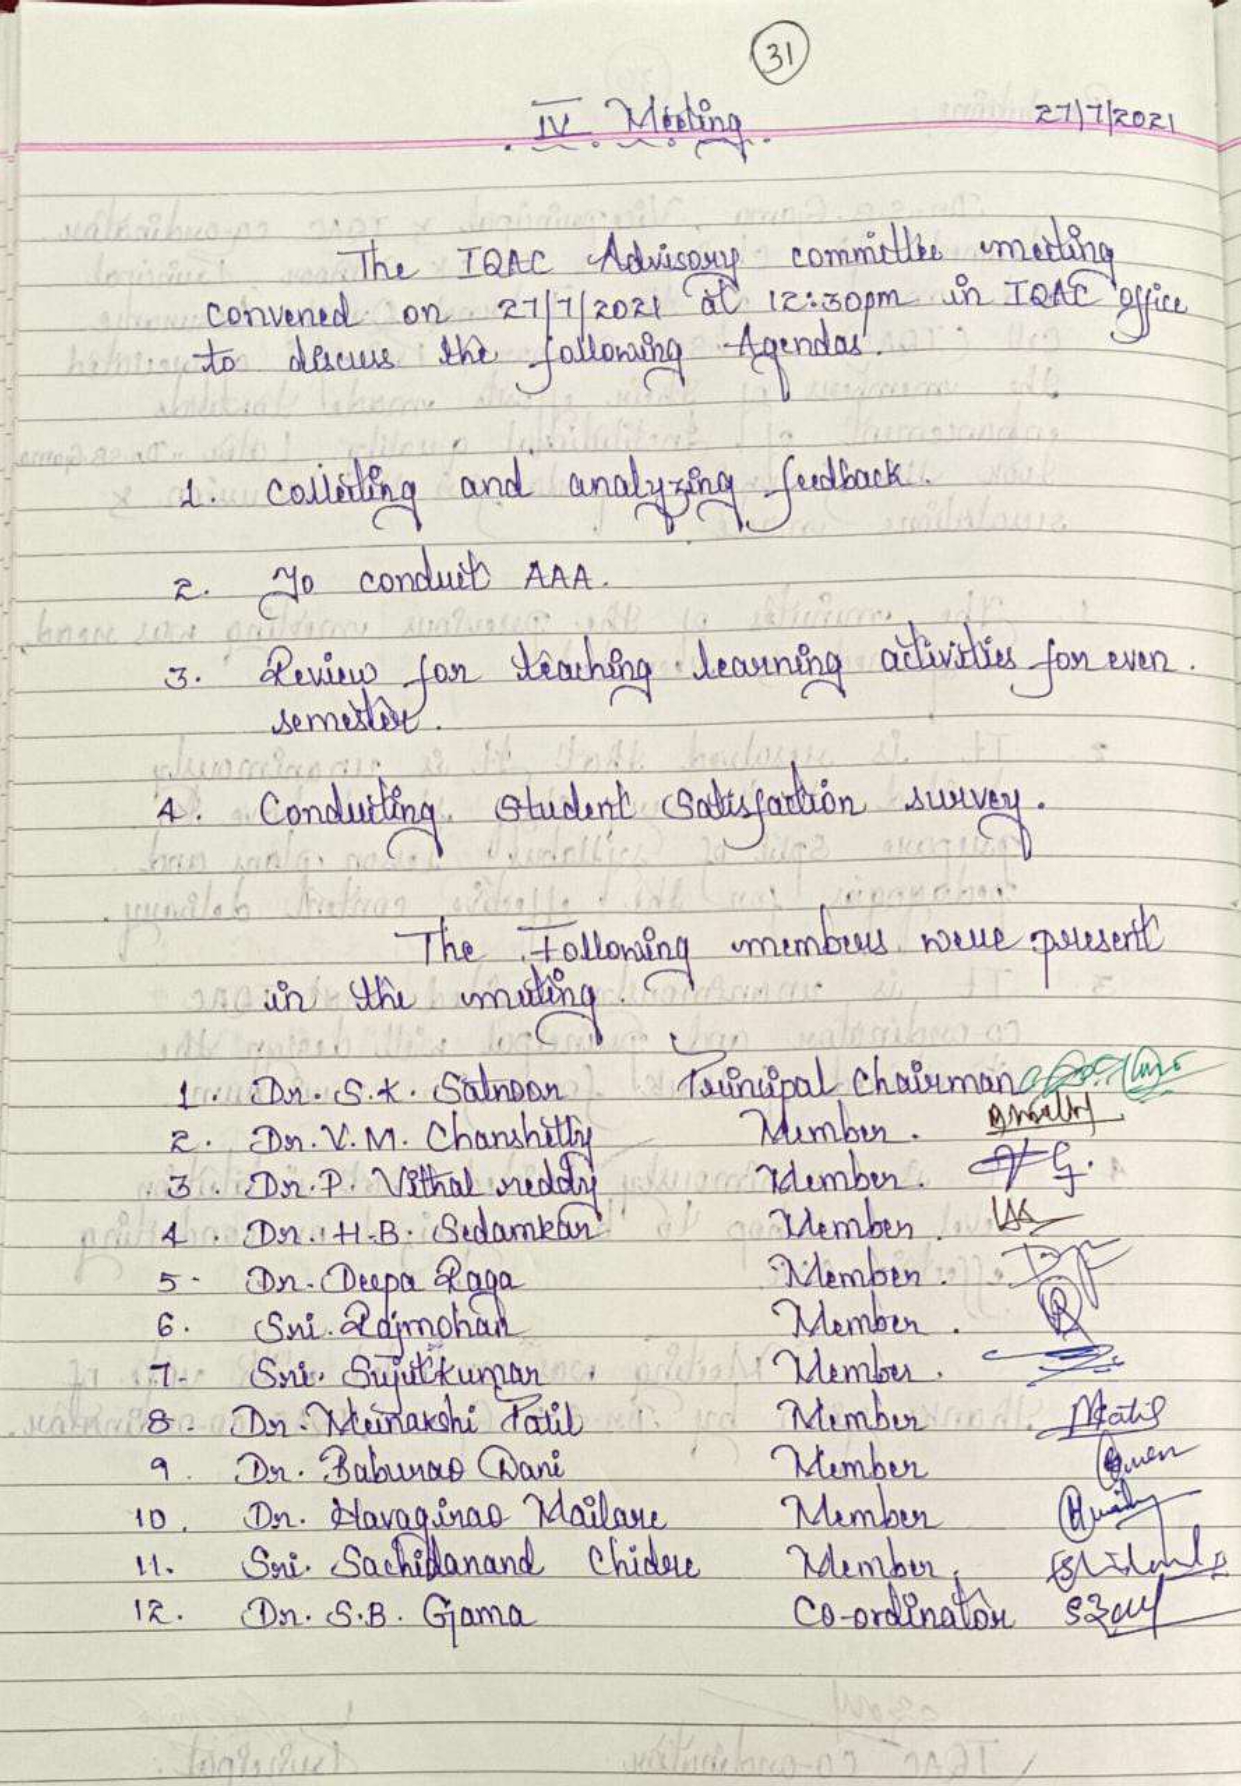 31
IV Meeting 27/7/2021
The IQAC Advisory committee meeting
convened on 27/7/2021 at 12:30pm in IQAC office
to discuss the following Agendas.
1. Collecting and analyzing feedback.
2. To conduct AAA.
3. Review for teaching learning activities for even.
semester.
4. Conducting Student Satisfaction survey.
The Following members were present
in the meeting.
1. Dr. S.K. Satnoor Principal Chairman
2. Dr. V.M. Chanshetty Member.
3. Dr. P. Vithal reddy Member.
4. Dr. H.B. Sedamkar Member.
5. Dr. Deepa Raga Member.
6. Sri. Rajmohan Member.
7. Sri. Sujitkumar Member.
8. Dr. Meinakshi Patil Member
9. Dr. Baburao Dani Member
10. Dr. Havaginao Mailare Member
11. Sri. Sachidanand Chidre Member,
12. Dr. S.B. Gama Co-ordinator